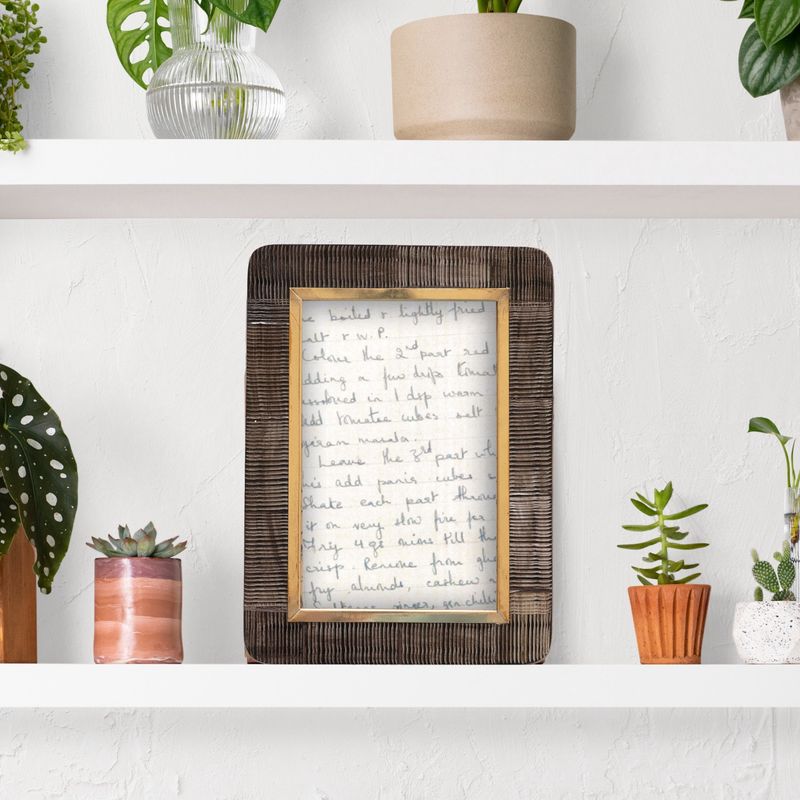 boiled & lightly fried
alt & w.P.
Colour the 2nd part red
dding a few drops tomat
ssolved in 1 dsp warm
dd tomatoe cubes salt
garam masala.
Leave the 3rd part whi
his add panir cubes
Shake each part throu
it on very slow fire for
Fry 4 gs onions till th
crisp. Remove from ghe
fry almonds, cashew n
Sultanas, ginger, grn chilli